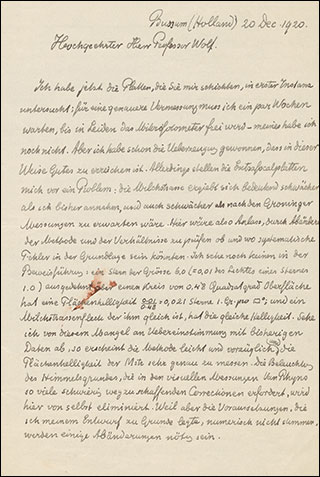 Bussum (Holland) 20 Dec 1920.
Hochgeehrter Herr Professor Wolf.
Ich habe jetzt die Platten, die Sie mir schickten, in erster Instanz
untersucht; für eine genauere Vermessung muss ich ein par Wochen
warten, bis in Leiden das Mikrofotometer frei wird – meines habe ich
noch nicht. Aber ich habe schon die Ueberzeugung gewonnen, dass in dieser
Weise Gutes zu erreichen ist. Allerdings stellen die Extrafocalplatten
mich vor ein Problem; die Milchstrasse ergiebt sich bedeutend schwächer
als ich bisher annahm, und auch schwächer als nach den Groninger
Messungen zu erwarten wäre. Hier wäre also Anlass, durch Abänderung
der Methode und der Verhältnisse zu prüfen ob und wo systematische
Fehler in der Grundlage sein könnten. Ich sehe noch keinen in der
Beweisführung: ein Stern der Grösse 6.0 (= 0,01 des Lichtes eines Sternes
1.0) ausgedehnt über einen Kreis von 0.48 Quadratgrad Oberfläche
hat eine Flächenhelligkeit 0,01/0,48 = 0,021 Sterne 1. Gr. pro □°, und ein
Milchstrassenfleck der ihm gleich ist, hat die gleiche Helligkeit. Sehe
ich von diesem Mangel an Uebereinstimmung mit bisherigen
Daten ab, so erscheint die Methode leicht und vorzüglich, die
Flächenhelligkeit der Mste sehr genau zu messen. Die Beleuchtung
des Himmelsgrundes, die in den visuellen Messungen Van Rhyns
so viele schwierig weg zu schaffenden Correctionen erfordert, wird
hier von selbst eliminiert. Weil aber die Voraussetzungen, die
ich meinem Entwurf zu Grunde legte, numerisch nicht stimmen,
werden einige Abänderungen nötig sein.